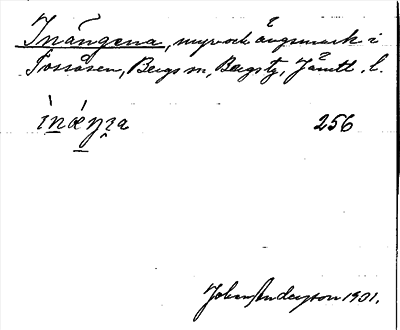 Inängena, myr och ängsmark i
Fossåsen, Bergs sn, Bergs tg, Jämtl. l.
ìnǽŋɪa 256
Johan Anderson 1901.